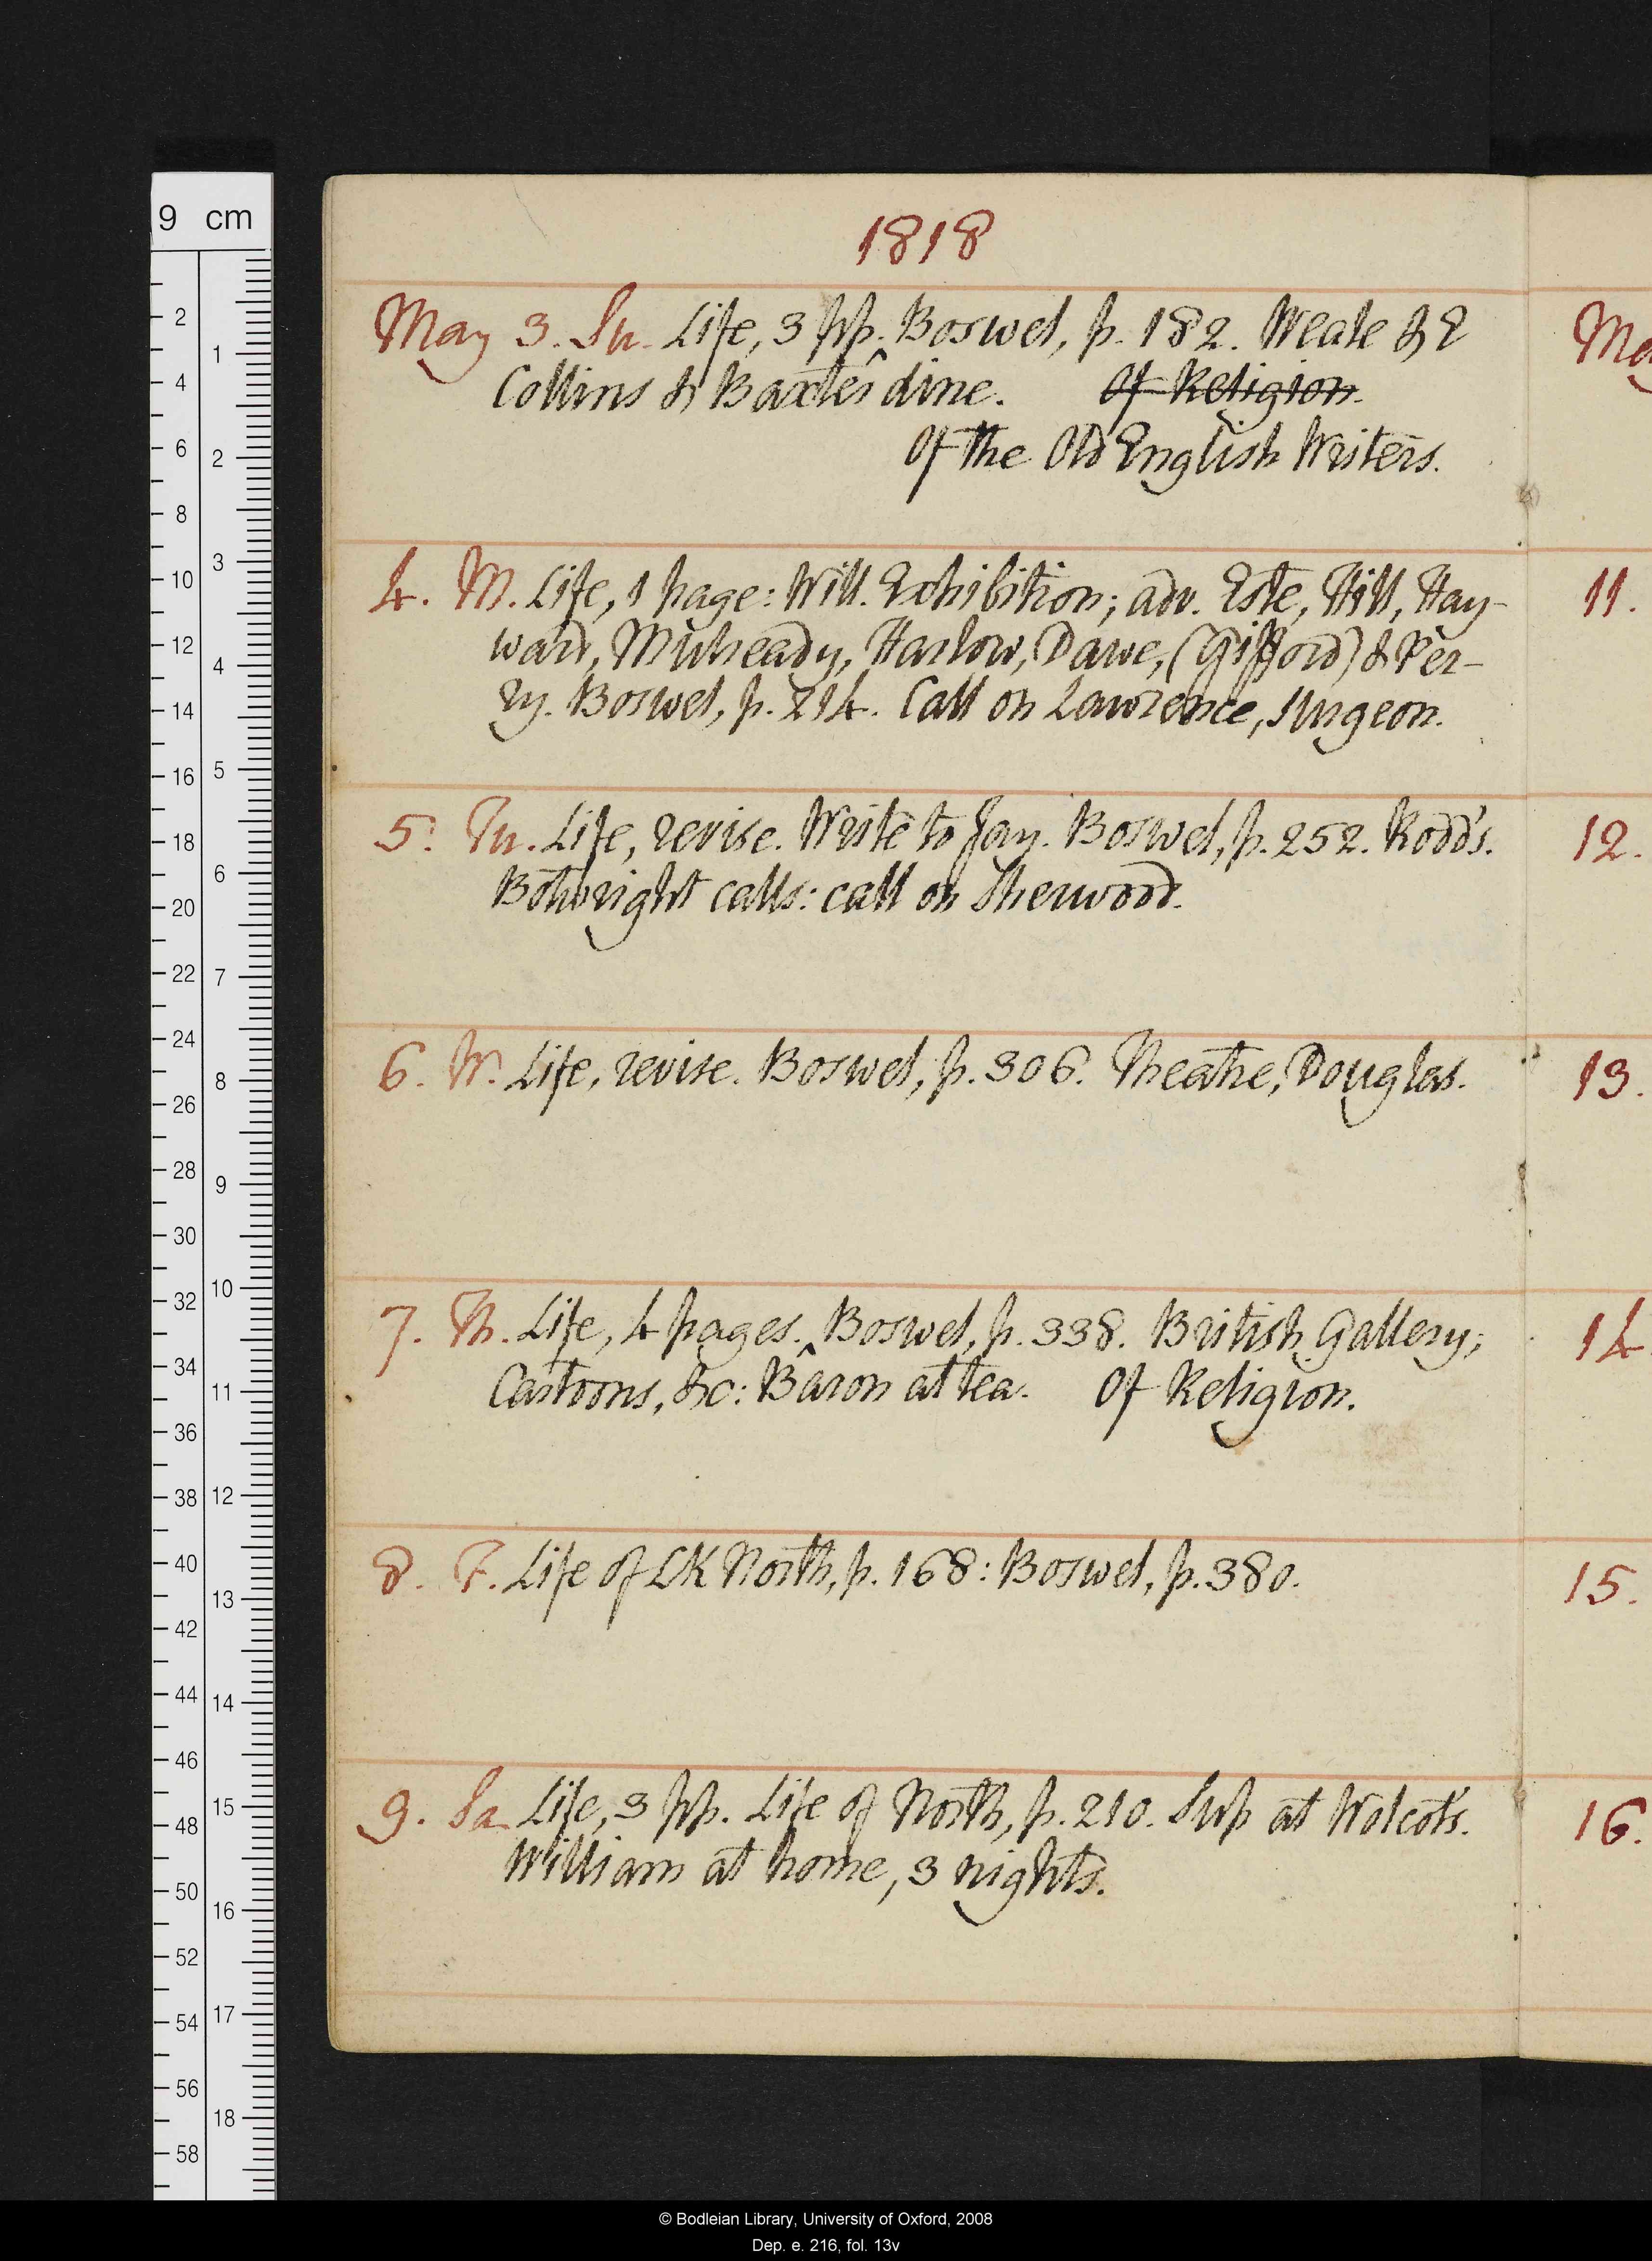 9 cm
1818
May 3. Su. Life, 3 pp. Boswel, p. 182. Weale & E
Collins & Baxter dine. Of Religion.
Of the Old English Writers.
4. M. Life, 1 page: Will. Exhibition; adv. Este, Hill, Hay-
ward, Mulready, Harlow, Dawe, (Gifford) & Per-
ry. Boswel, p. 214. Call on Lawrence, surgeon.
5. Tu. Life, revise. Write to Jay. Boswel, p. 252. Rodd's.
Bothwright calls: call on Sherwood.
6. W. Life, revise. Boswel, p. 306. Theatre, Douglas.
7. Th. Life, 4 pages. Boswel, p. 338. British Gallery;
Cartoons, &c: Baron at tea. Of Religion.
8. F. Life of LK North, p. 168: Boswel, p. 380.
9. Sa Life, 3 pp. Life of North, p. 210. Sup at Wolcot's.
William at home, 3 nights.
Ma
11.
12.
13.
14
15.
16.
© Bodleian Library, University of Oxford, 2008
Dep. e. 216, fol. 13v